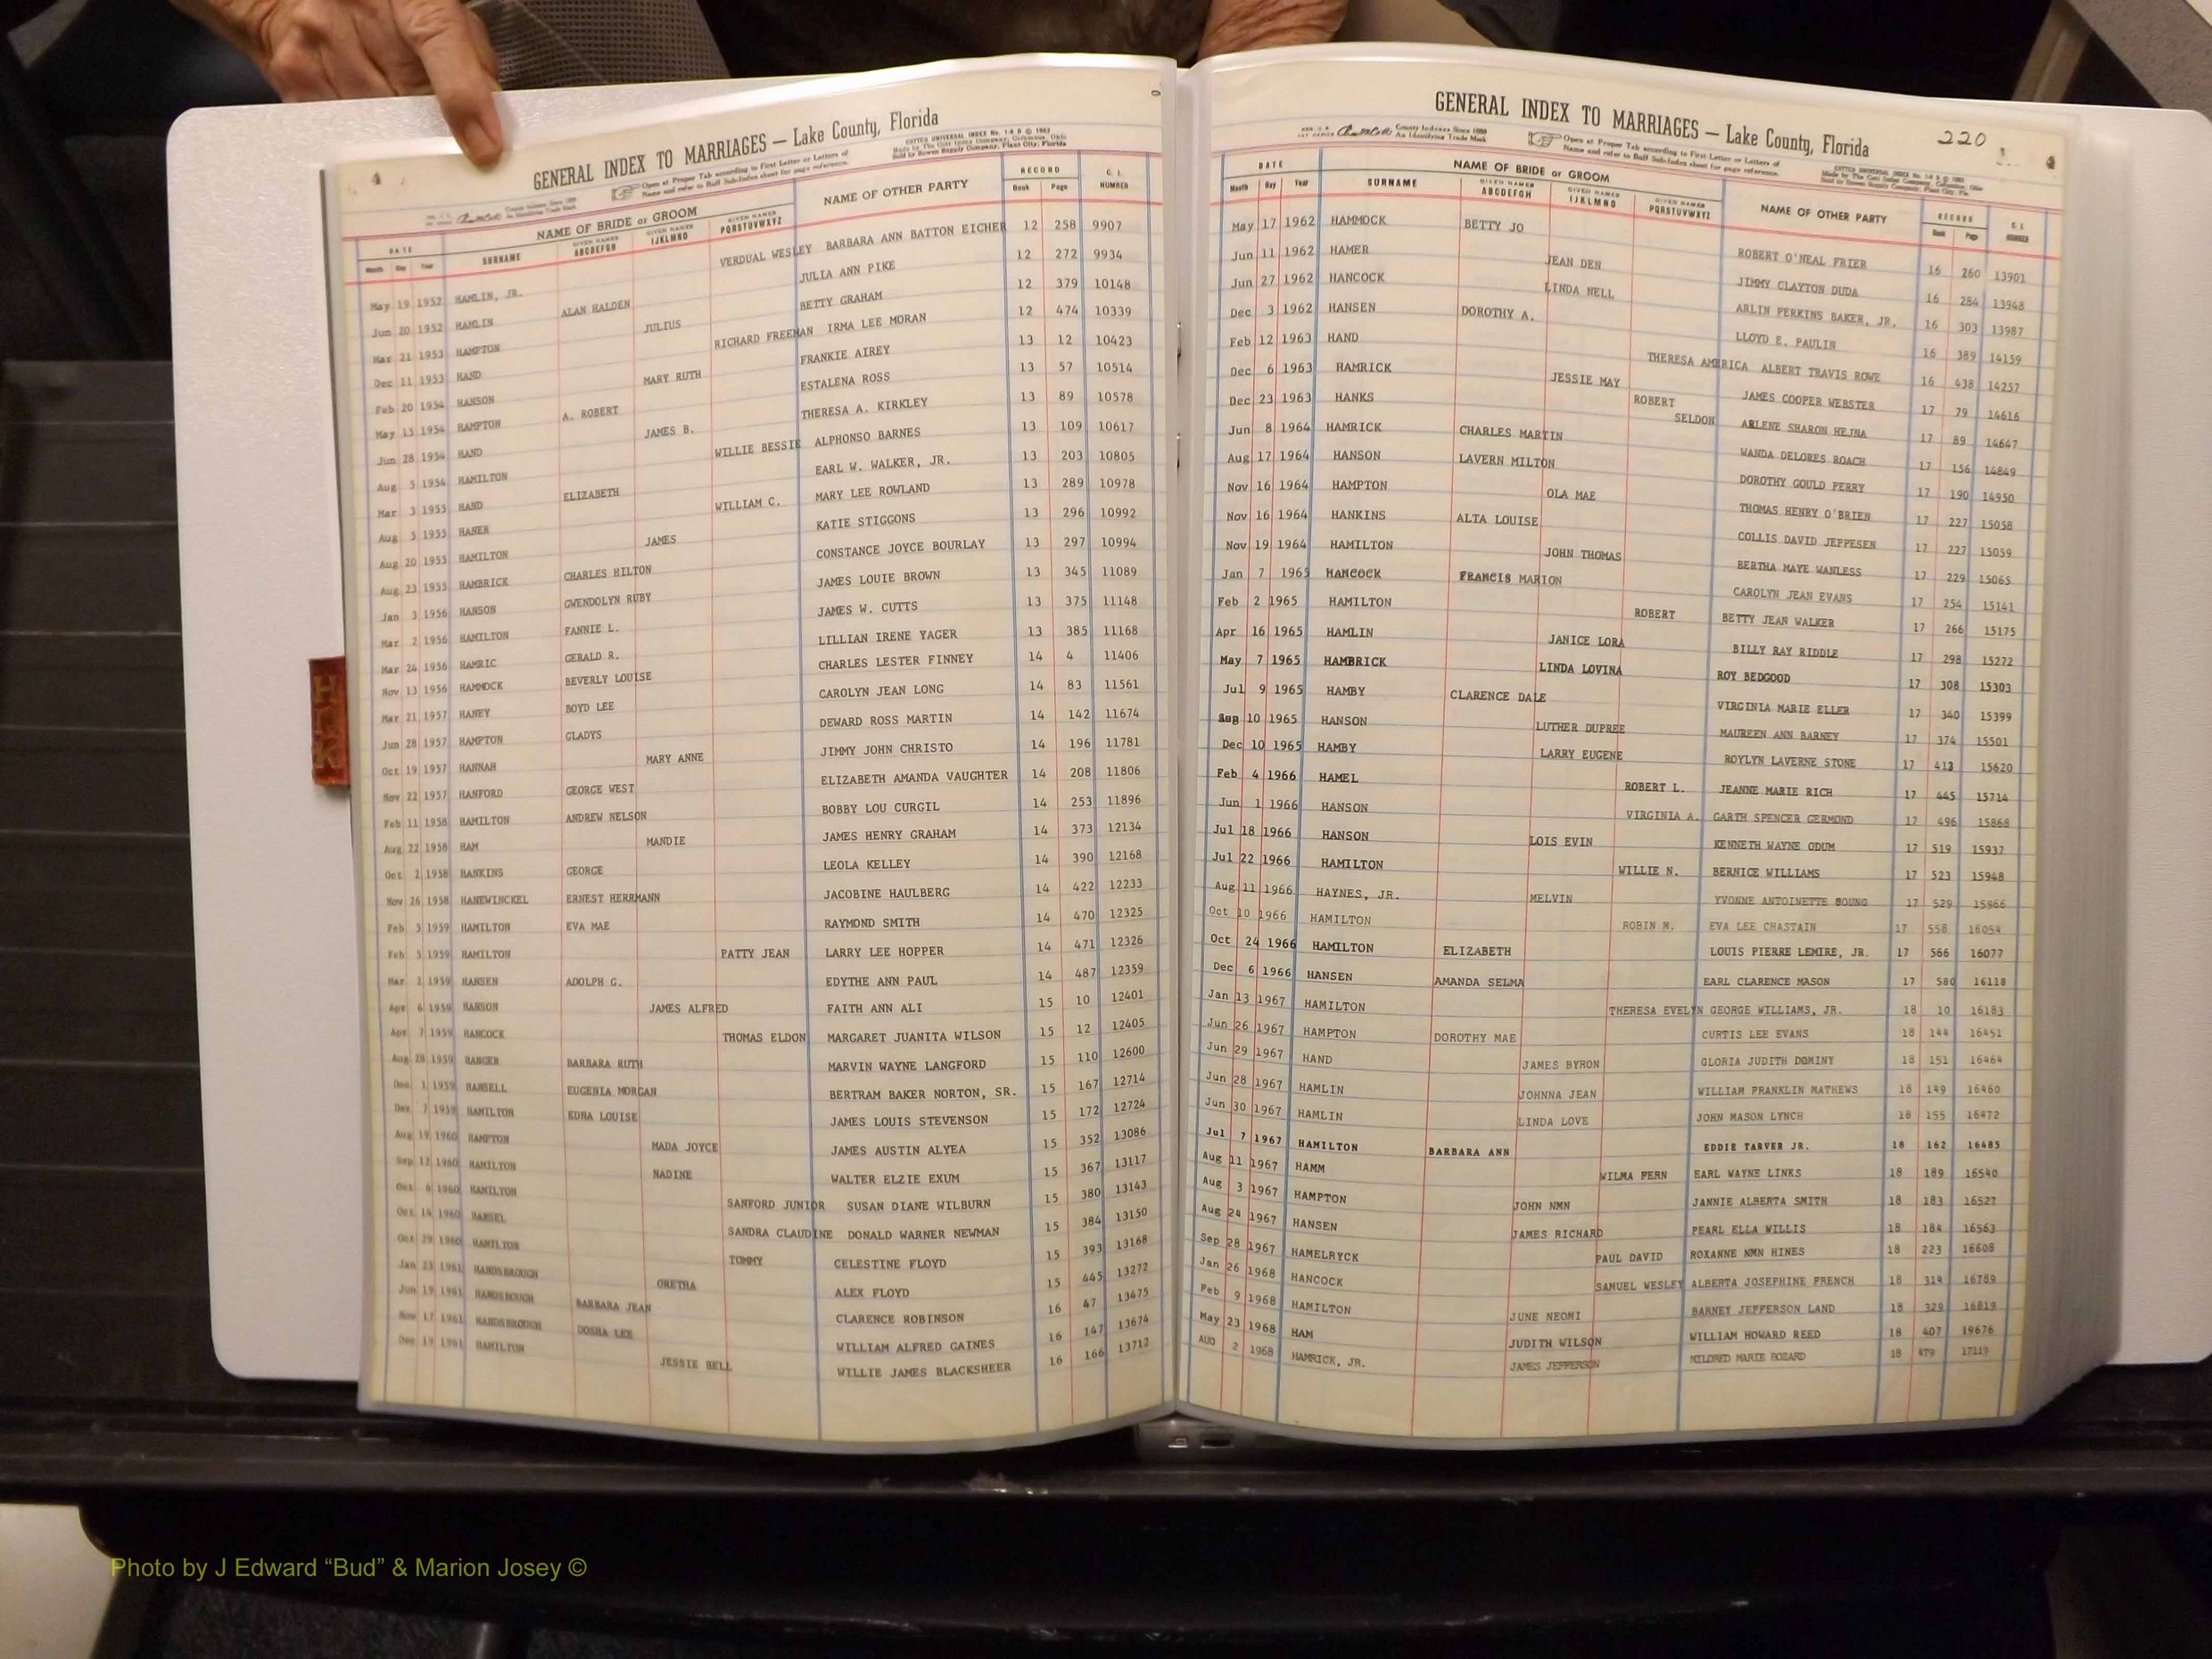 4
GENERAL INDEX TO MARRIAGES — Lake County, Florida
Open at Proper Tab according to First Letter or Letters of
Name and refer to Buff Sub-Index sheet for page reference.
DATE NAME OF BRIDE or GROOM NAME OF OTHER PARTY RECORD G. I. NUMBER
Month Day Year SURNAME GIVEN NAMES ABCDEFGH GIVEN NAMES IJKLMNO GIVEN NAMES PQRSTUVWXYZ Book Page
May 19 1952 HAMLIN, JR. VERDUAL WESLEY BARBARA ANN BATTON EICHER 12 258 9907
Jun 20 1952 HAMLIN ALAN HALDEN JULIA ANN PIKE 12 272 9934
Mar 21 1953 HAMPTON JULIUS BETTY GRAHAM 12 379 10148
Dec 11 1953 HAND RICHARD FREEMAN IRMA LEE MORAN 12 474 10339
Feb 20 1954 HANSON MARY RUTH FRANKIE AIREY 13 12 10423
May 13 1954 HAMPTON A. ROBERT ESTALENA ROSS 13 57 10514
Jun 28 1954 HAND JAMES B. THERESA A. KIRKLEY 13 89 10578
Aug 5 1954 HAMILTON WILLIE BESSIE ALPHONSO BARNES 13 109 10617
Mar 3 1955 HAND ELIZABETH EARL W. WALKER, JR. 13 203 10805
Aug 5 1955 HANER WILLIAM C. MARY LEE ROWLAND 13 289 10978
Aug 20 1955 HAMILTON JAMES KATIE STIGGONS 13 296 10992
Aug 23 1955 HAMBRICK CHARLES HILTON CONSTANCE JOYCE BOURLAY 13 297 10994
Jan 3 1956 HANSON GWENDOLYN RUBY JAMES LOUIE BROWN 13 345 11089
Mar 2 1956 HAMILTON FANNIE L. JAMES W. CUTTS 13 375 11148
Mar 24 1956 HAMRIC GERALD R. LILLIAN IRENE YAGER 13 385 11168
Nov 13 1956 HAMMOCK BEVERLY LOUISE CHARLES LESTER FINNEY 14 4 11406
Mar 21 1957 HANEY BOYD LEE CAROLYN JEAN LONG 14 83 11561
Jun 28 1957 HAMPTON GLADYS DEWARD ROSS MARTIN 14 142 11674
Oct 19 1957 HANNAH MARY ANNE JIMMY JOHN CHRISTO 14 196 11781
Nov 22 1957 HANFORD GEORGE WEST ELIZABETH AMANDA VAUGHTER 14 208 11806
Feb 11 1958 HAMILTON ANDREW NELSON BOBBY LOU CURGIL 14 253 11896
Aug 22 1958 HAM MANDIE JAMES HENRY GRAHAM 14 373 12134
Oct 2 1958 HANKINS GEORGE LEOLA KELLEY 14 390 12168
Nov 26 1958 HANEWINCKEL ERNEST HERRMANN JACOBINE HAULBERG 14 422 12233
Feb 5 1959 HAMILTON EVA MAE RAYMOND SMITH 14 470 12325
Feb 5 1959 HAMILTON PATTY JEAN LARRY LEE HOPPER 14 471 12326
Mar 2 1959 HANSEN ADOLPH G. EDYTHE ANN PAUL 14 487 12359
Apr 6 1959 HANSON JAMES ALFRED FAITH ANN ALI 15 10 12401
Apr 7 1959 HANCOCK THOMAS ELDON MARGARET JUANITA WILSON 15 12 12405
Aug 28 1959 HANGER BARBARA RUTH MARVIN WAYNE LANGFORD 15 110 12600
Dec 1 1959 HANSELL EUGENIA MORGAN BERTRAM BAKER NORTON, SR. 15 167 12714
Dec 7 1959 HAMILTON EDNA LOUISE JAMES LOUIS STEVENSON 15 172 12724
Aug 19 1960 HAMPTON MADA JOYCE JAMES AUSTIN ALYEA 15 352 13086
Sep 12 1960 HAMILTON NADINE WALTER ELZIE EXUM 15 367 13117
Oct 6 1960 HAMILTON SANFORD JUNIOR SUSAN DIANE WILBURN 15 380 13143
Oct 14 1960 HANSEL SANDRA CLAUDINE DONALD WARNER NEWMAN 15 384 13150
Oct 29 1960 HAMILTON TOMMY CELESTINE FLOYD 15 393 13168
Jan 23 1961 HANDSBROUGH ORETHA ALEX FLOYD 15 445 13272
Jun 19 1961 HANDSBOUGH BARBARA JEAN CLARENCE ROBINSON 16 47 13475
Nov 17 1961 HANDSBROUGH DOSHA LEE WILLIAM ALFRED GAINES 16 147 13674
Dec 19 1961 HAMILTON JESSIE BELL WILLIE JAMES BLACKSHEER 16 166 13712
220
4
GENERAL INDEX TO MARRIAGES — Lake County, Florida
Open at Proper Tab according to First Letter or Letters of
Name and refer to Buff Sub-Index sheet for page reference.
DATE NAME OF BRIDE or GROOM NAME OF OTHER PARTY RECORD G. I. NUMBER
Month Day Year SURNAME GIVEN NAMES ABCDEFGH GIVEN NAMES IJKLMNO GIVEN NAMES PQRSTUVWXYZ Book Page
May 17 1962 HAMMOCK BETTY JO ROBERT O'NEAL FRIER 16 260 13901
Jun 11 1962 HAMER JEAN DEN JIMMY CLAYTON DUDA 16 284 13948
Jun 27 1962 HANCOCK LINDA NELL ARLIN PERKINS BAKER, JR. 16 303 13987
Dec 3 1962 HANSEN DOROTHY A. LLOYD E. PAULIN 16 389 14159
Feb 12 1963 HAND THERESA AMERICA ALBERT TRAVIS ROWE 16 438 14257
Dec 6 1963 HAMRICK JESSIE MAY JAMES COOPER WEBSTER 17 79 14616
Dec 23 1963 HANKS ROBERT SELDON ARLENE SHARON HEJNA 17 89 14647
Jun 8 1964 HAMRICK CHARLES MARTIN WANDA DELORES ROACH 17 156 14849
Aug 17 1964 HANSON LAVERN MILTON DOROTHY GOULD PERRY 17 190 14950
Nov 16 1964 HAMPTON OLA MAE THOMAS HENRY O'BRIEN 17 227 15058
Nov 16 1964 HANKINS ALTA LOUISE COLLIS DAVID JEPPESEN 17 227 15059
Nov 19 1964 HAMILTON JOHN THOMAS BERTHA MAYE WANLESS 17 229 15065
Jan 7 1965 HANCOCK FRANCIS MARION CAROLYN JEAN EVANS 17 254 15141
Feb 2 1965 HAMILTON ROBERT BETTY JEAN WALKER 17 266 15175
Apr 16 1965 HAMLIN JANICE LORA BILLY RAY RIDDLE 17 298 15272
May 7 1965 HAMBRICK LINDA LOVINA ROY BEDGOOD 17 308 15303
Jul 9 1965 HAMBY CLARENCE DALE VIRGINIA MARIE ELLER 17 340 15399
Sep 10 1965 HANSON LUTHER DUPREE MAUREEN ANN BARNEY 17 374 15501
Dec 10 1965 HAMBY LARRY EUGENE ROYLYN LAVERNE STONE 17 413 15620
Feb 4 1966 HAMEL ROBERT L. JEANNE MARIE RICH 17 445 15714
Jun 1 1966 HANSON VIRGINIA A. GARTH SPENCER GERMOND 17 496 15868
Jul 18 1966 HANSON LOIS EVIN KENNETH WAYNE ODUM 17 519 15937
Jul 22 1966 HAMILTON WILLIE N. BERNICE WILLIAMS 17 523 15948
Aug 11 1966 HAYNES, JR. MELVIN YVONNE ANTOINETTE 17 529 15966
Oct 10 1966 HAMILTON ROBIN M. EVA LEE CHASTAIN 17 558 16054
Oct 24 1966 HAMILTON ELIZABETH LOUIS PIERRE LEMIRE, JR. 17 566 16077
Dec 6 1966 HANSEN AMANDA SELMA EARL CLARENCE MASON 17 580 16118
Jan 13 1967 HAMILTON THERESA EVELYN GEORGE WILLIAMS, JR. 18 10 16183
Jun 26 1967 HAMPTON DOROTHY MAE CURTIS LEE EVANS 18 144 16451
Jun 29 1967 HAND JAMES BYRON GLORIA JUDITH DOMINY 18 151 16464
Jun 28 1967 HAMLIN JOHNNA JEAN WILLIAM FRANKLIN MATHEWS 18 149 16460
Jun 30 1967 HAMLIN LINDA LOVE JOHN MASON LYNCH 18 155 16472
Jul 7 1967 HAMILTON BARBARA ANN EDDIE TARVER JR. 18 162 16485
Aug 11 1967 HAMM WILMA FERN EARL WAYNE LINKS 18 189 16540
Aug 3 1967 HAMPTON JOHN NMN JANNIE ALBERTA SMITH 18 183 16527
Aug 24 1967 HANSEN JAMES RICHARD PEARL ELLA WILLIS 18 184 16563
Sep 28 1967 HAMELRYCK PAUL DAVID ROXANNE NMN HINES 18 223 16608
Jan 26 1968 HANCOCK SAMUEL WESLEY ALBERTA JOSEPHINE FRENCH 18 314 16789
Feb 9 1968 HAMILTON JUNE NEOMI BARNEY JEFFERSON LAND 18 329 16819
May 23 1968 HAM JUDITH WILSON WILLIAM HOWARD REED 18 407 19676
AUG 2 1968 HAMRICK, JR. JAMES JEFFERSON MILDRED MARIE BOZARD 18 479 17119
Photo by J Edward “Bud” & Marion Josey ©